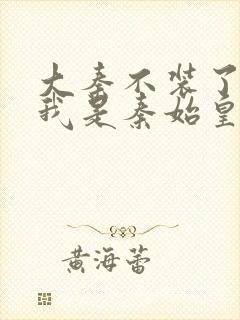 大秦不装了
我是秦始皇
黄海蕾